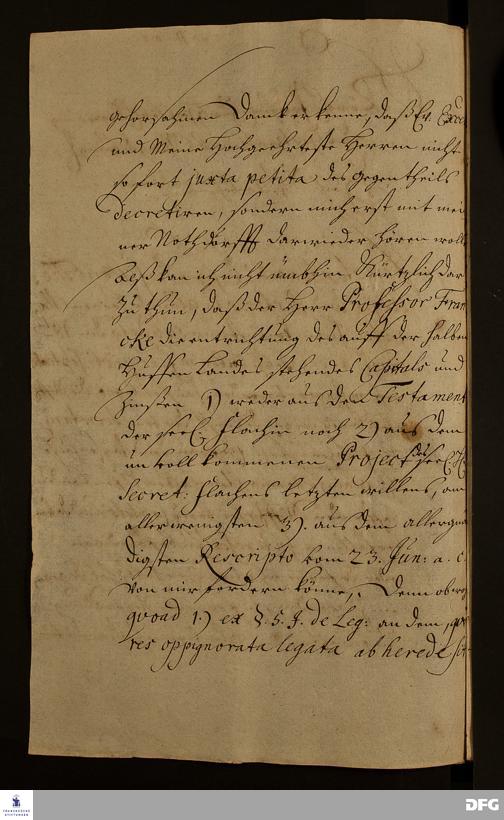 gehorsahmen Danck erkenne, daß Ew. Excel
und Meine Hochgeehrteste Herren nicht
so fort juxta petita des Gegentheils
decretiren, sondern mich erst mit mei
ner Nothdurfft darwieder hören woll
Als kan ich nicht umbhin Kürtzlich dar
zu thun, daß der Herr Professor Fran
cke die entrichtung des auff der halben
Huffen Landes stehendes Capitals und
Zinsen 1) weder aus dem Testament
der seel. Flachin noch 2) aus dem
unvollkommenen Project des seel. H.
Secret: Flachens letzten willens, am
allerwenigsten 3). aus dem allergnä
digsten Rescripto vom 23. Jun: a. c.
von mir fordern könne, Denn ob wo
quoad 1.) ex §. 5. J. de Leg: an dem,
res oppignorata legata ab herede
FRANCKESCHE STIFTUNGEN
DFG